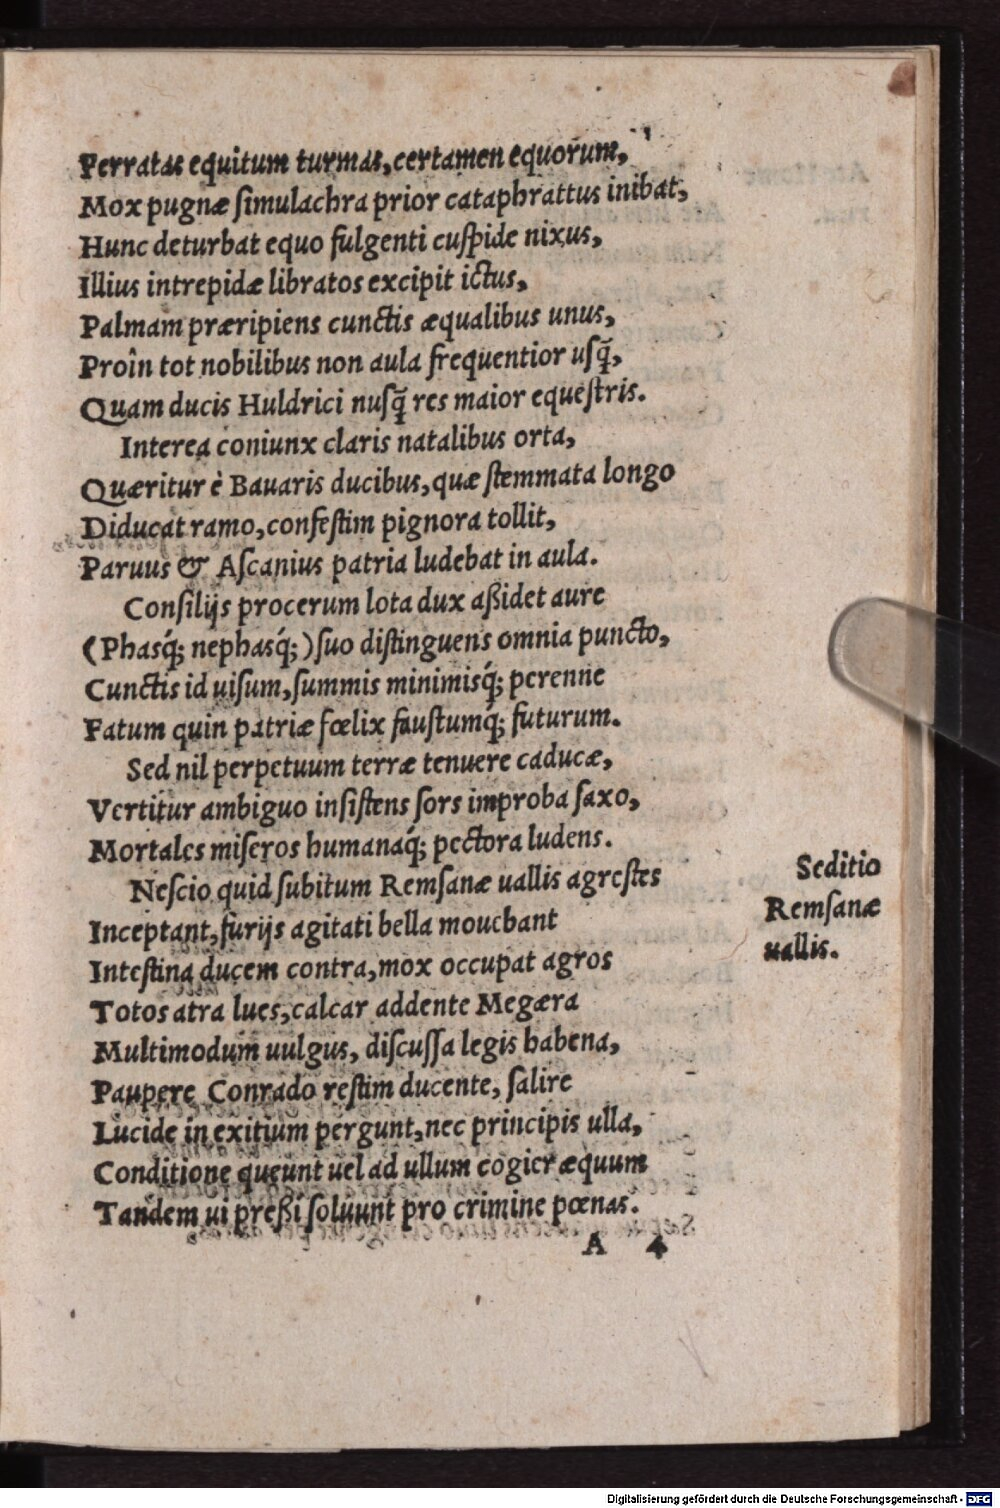 Ferratas equitum turmas, certamen equorum,
Mox pugnæ ſimulachra prior cataphrattus inibat,
Hunc deturbat equo fulgenti cuſpide nixus,
Illius intrepidæ libratos excipit ictus,
Palmam præripiens cunctis æqualibus unus,
Proîn tot nobilibus non aula frequentior uſq̃,
Quam ducis Huldrici nuſq̃ res maior equeſtris.
Interea coniunx claris natalibus orta,
Quæritur è Bavaris ducibus, quæ ſtemmata longo
Diducat ramo, confeſtim pignora tollit,
Paruus & Aſcanius patria ludebat in aula.
Conſilijs procerum lota dux aßidet aure
(Phasq́; nephasq́;) ſuo diſtinguens omnia puncto,
Cunctis id uiſum, ſummis minimisq́; perenne
Fatum quin patriæ fœlix fauſtumq́; futurum.
Sed nil perpetuum terræ tenuere caducæ,
Vertitur ambiguo inſiſtens ſors improba ſaxo,
Mortales miſeros humanaq́; pectora ludens.
Neſcio quid ſubitum Remſanæ uallis agreſtes
Inceptant, furijs agitati bella mouebant
Inteſtina ducem contra, mox occupat agros
Totos atra lues, calcar addente Megæra
Multimodum uulgus, diſcuſſa legis habena,
Paupere Conrado reſtim ducente, ſalire
Lucide in exitium pergunt, nec principis ulla,
Conditione queunt uel ad ullum cogier æquum
Tandem ui preßi ſoluunt pro crimine pœnas.
A 4
Seditio
Remſanæ
uallis.
Digitalisierung gefördert durch die Deutsche Forschungsgemeinschaft - DFG